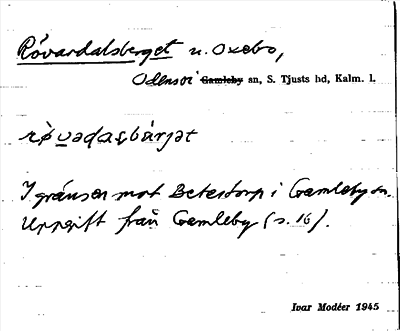 Rövardalsberget u. Oxebo,
Odensvi ~~Gamleby~~ sn, S. Tjusts hd, Kalm. l.
rø̀vadasbärjət
I gränsen mot Beterstorp i Gamleby sn.
Uppgift från Gamleby (s. 16).
Ivar Modéer 1945